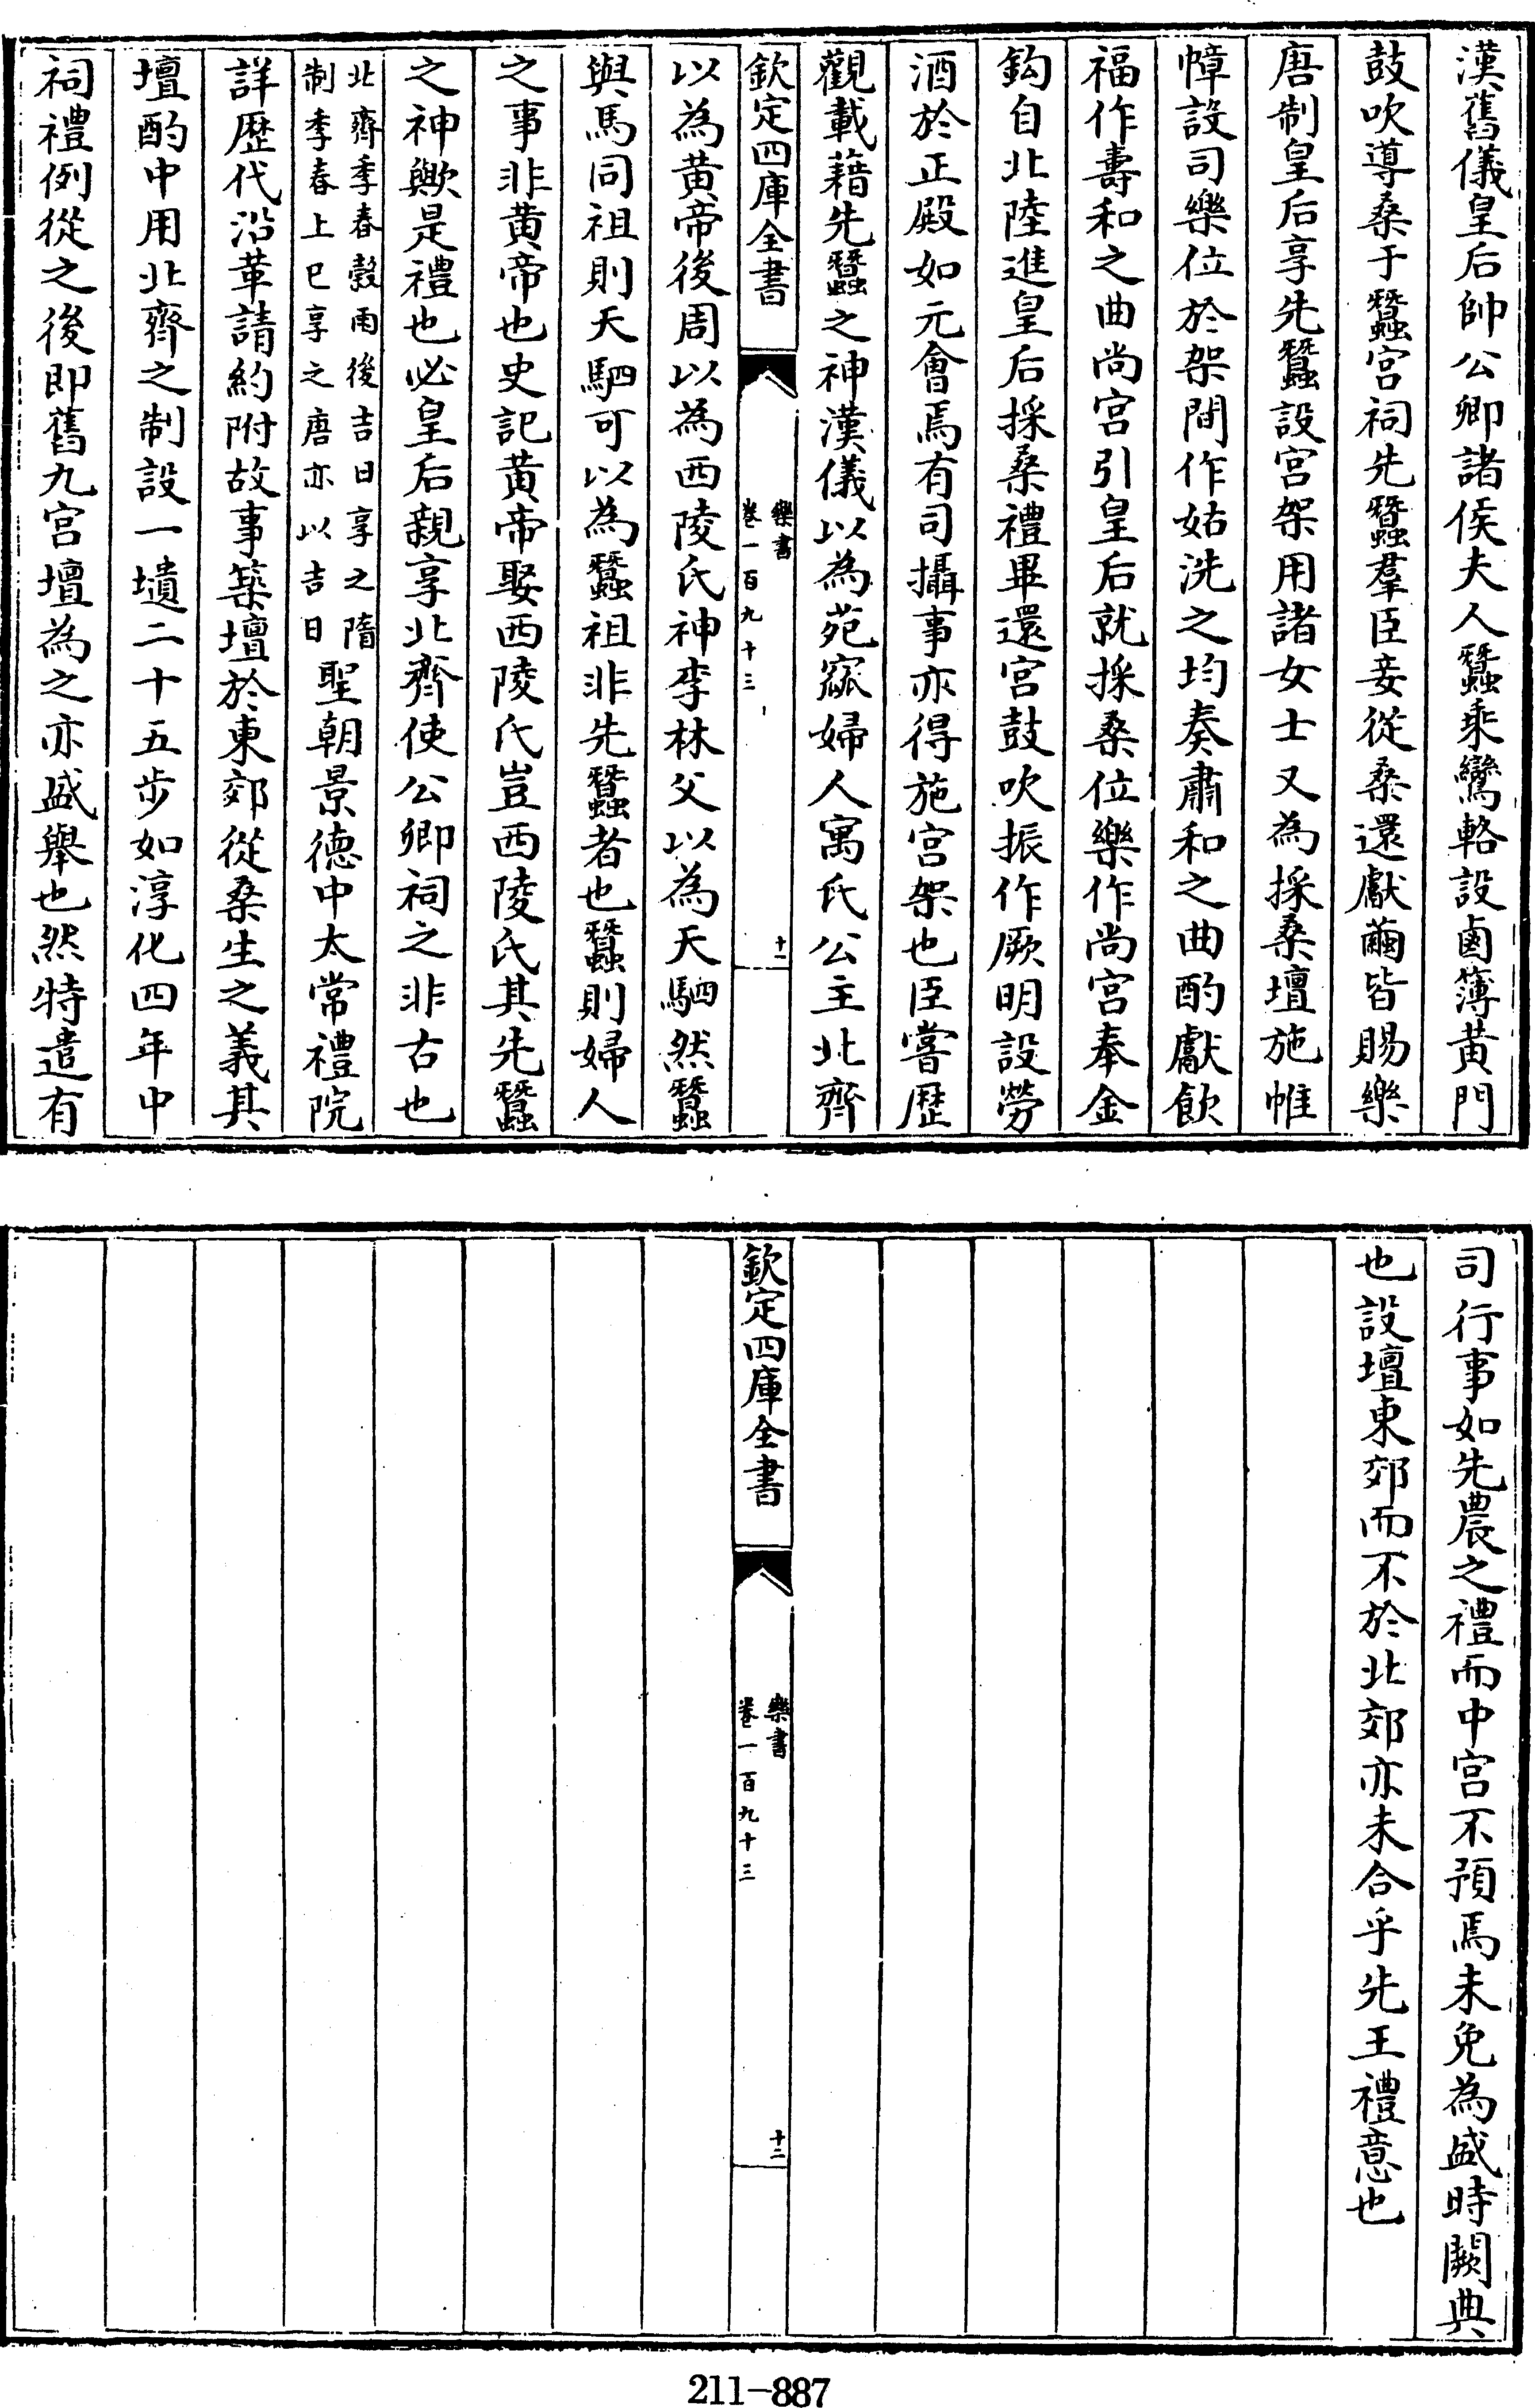 漢舊儀皇后帥公卿諸侯夫人蠶乘鸞輅設鹵簿黄門
鼓吹導桑于蠶宫祠先蠶羣臣妾從桑還獻繭皆賜樂
唐制皇后享先蠶設宫架用諸女士又為採桑壇施帷
幛設司樂位於架間作姑洗之均奏肅和之曲酌獻飲
福作壽和之曲尚宫引皇后就採桑位樂作尚宫奉金
鈎自北陸進皇后採桑禮畢還宫鼓吹振作厥明設勞
酒於正殿如元會焉有司攝事亦得施宫架也臣嘗歴
觀載藉先蠶之神漢儀以為苑窳婦人寓氏公主北齊
欽定四庫全書
樂書
卷一百九十三
十一
以為黄帝後周以為西陵氏神李林父以為天駟然蠶
與馬同祖則天駟可以為蠶祖非先蠶者也蠶則婦人
之事非黄帝也史記黄帝娶西陵氏豈西陵氏其先蠶
之神歟是禮也必皇后親享北齊使公卿祠之非古也
北齊季春穀雨後吉日享之隋
制季春上巳享之唐亦以吉日
聖朝景德中太常禮院
詳歴代沿革請約附故事築壇於東郊從桑生之義其
壇酌中用北齊之制設一壝二十五步如淳化四年中
祠禮例從之後即舊九宫壇為之亦盛舉也然特遣有
司行事如先農之禮而中宫不預焉未免為盛時闕典
也設壇東郊而不於北郊亦未合乎先王禮意也
欽定四庫全書
樂書
卷一百九十三
十二
211-887